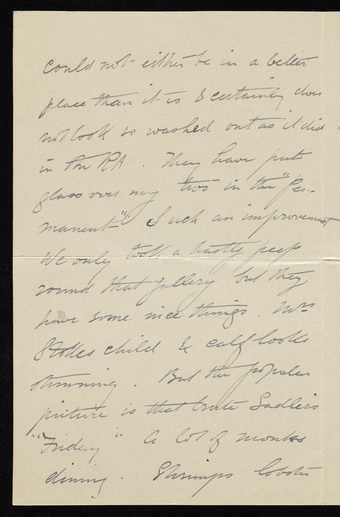 could not either be in a better
place than it is & certainly does
not look so washed out as it did
in the RA. They have put
glass over my two in the "Per-
manent" Such an improvement
We only took a hasty peep
round that gallery but they
have some nice things. Mrs
Stokes child & calf looks
stunning. But the popular
picture is that brute Sadlers
"Friday" A lot of monks
dining. Shrimps lobster